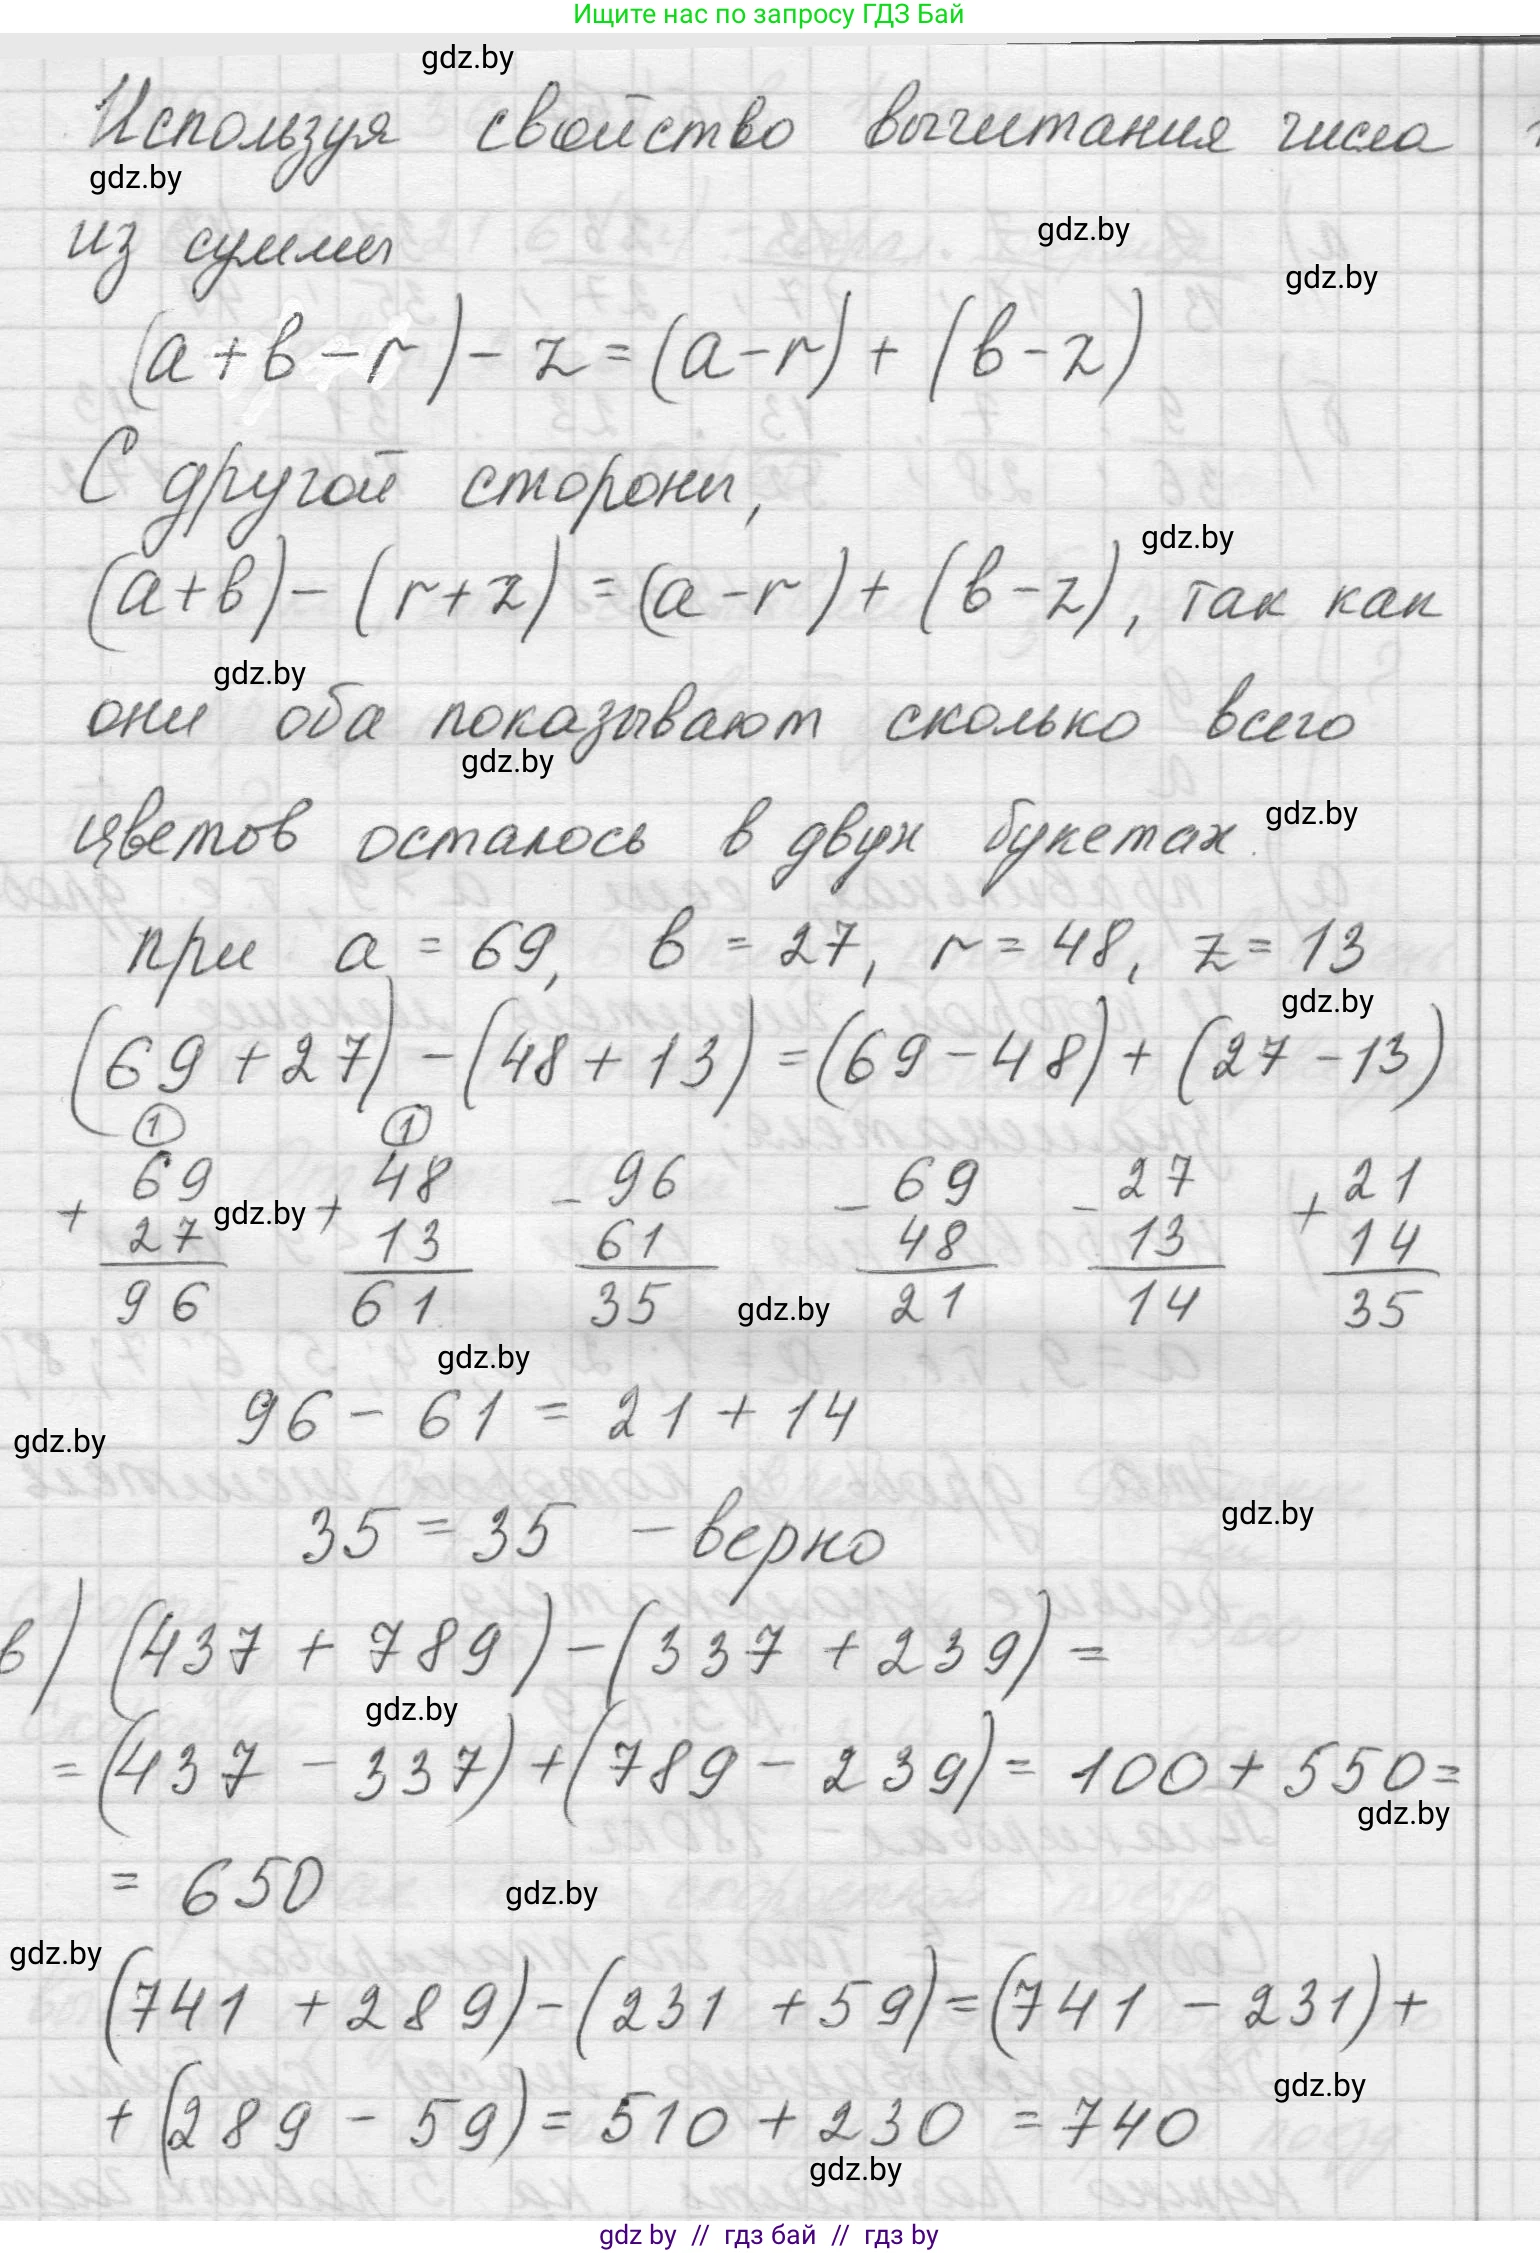 Ищите нас по запросу ГДЗ Бай
gdz.by
Используя свойство вычитания числа
gdz.by
из суммы
gdz.by
gdz.by
(a+b-r)-z=(a-r)+(b-z)
С другой стороны,
gdz.by
(a+b)-(r+z)=(a-r)+(b-z), так как
gdz.by
они оба показывают сколько всего
gdz.by
цветов осталось в двух букетах.
gdz.by
при a=69, b=27, r=48, z=13
gdz.by
(69+27)-(48+13)=(69-48)+(27-13)
1 1
69 48 96 69 27 21
+ gdz.by + - - - +
27 13 61 48 13 14
96 61 35 21 14 35
gdz.by
gdz.by
96-61=21+14
gdz.by
35=35 -верно
gdz.by
в) (437+789)-(337+239)=
gdz.by
=(437-337)+(789-239)=100+550=
gdz.by
=650
gdz.by
gdz.by
(741+289)-(231+59)=(741-231)+
gdz.by
+(289-59)=510+230=740
gdz.by
gdz by // гдз бай // гдз by